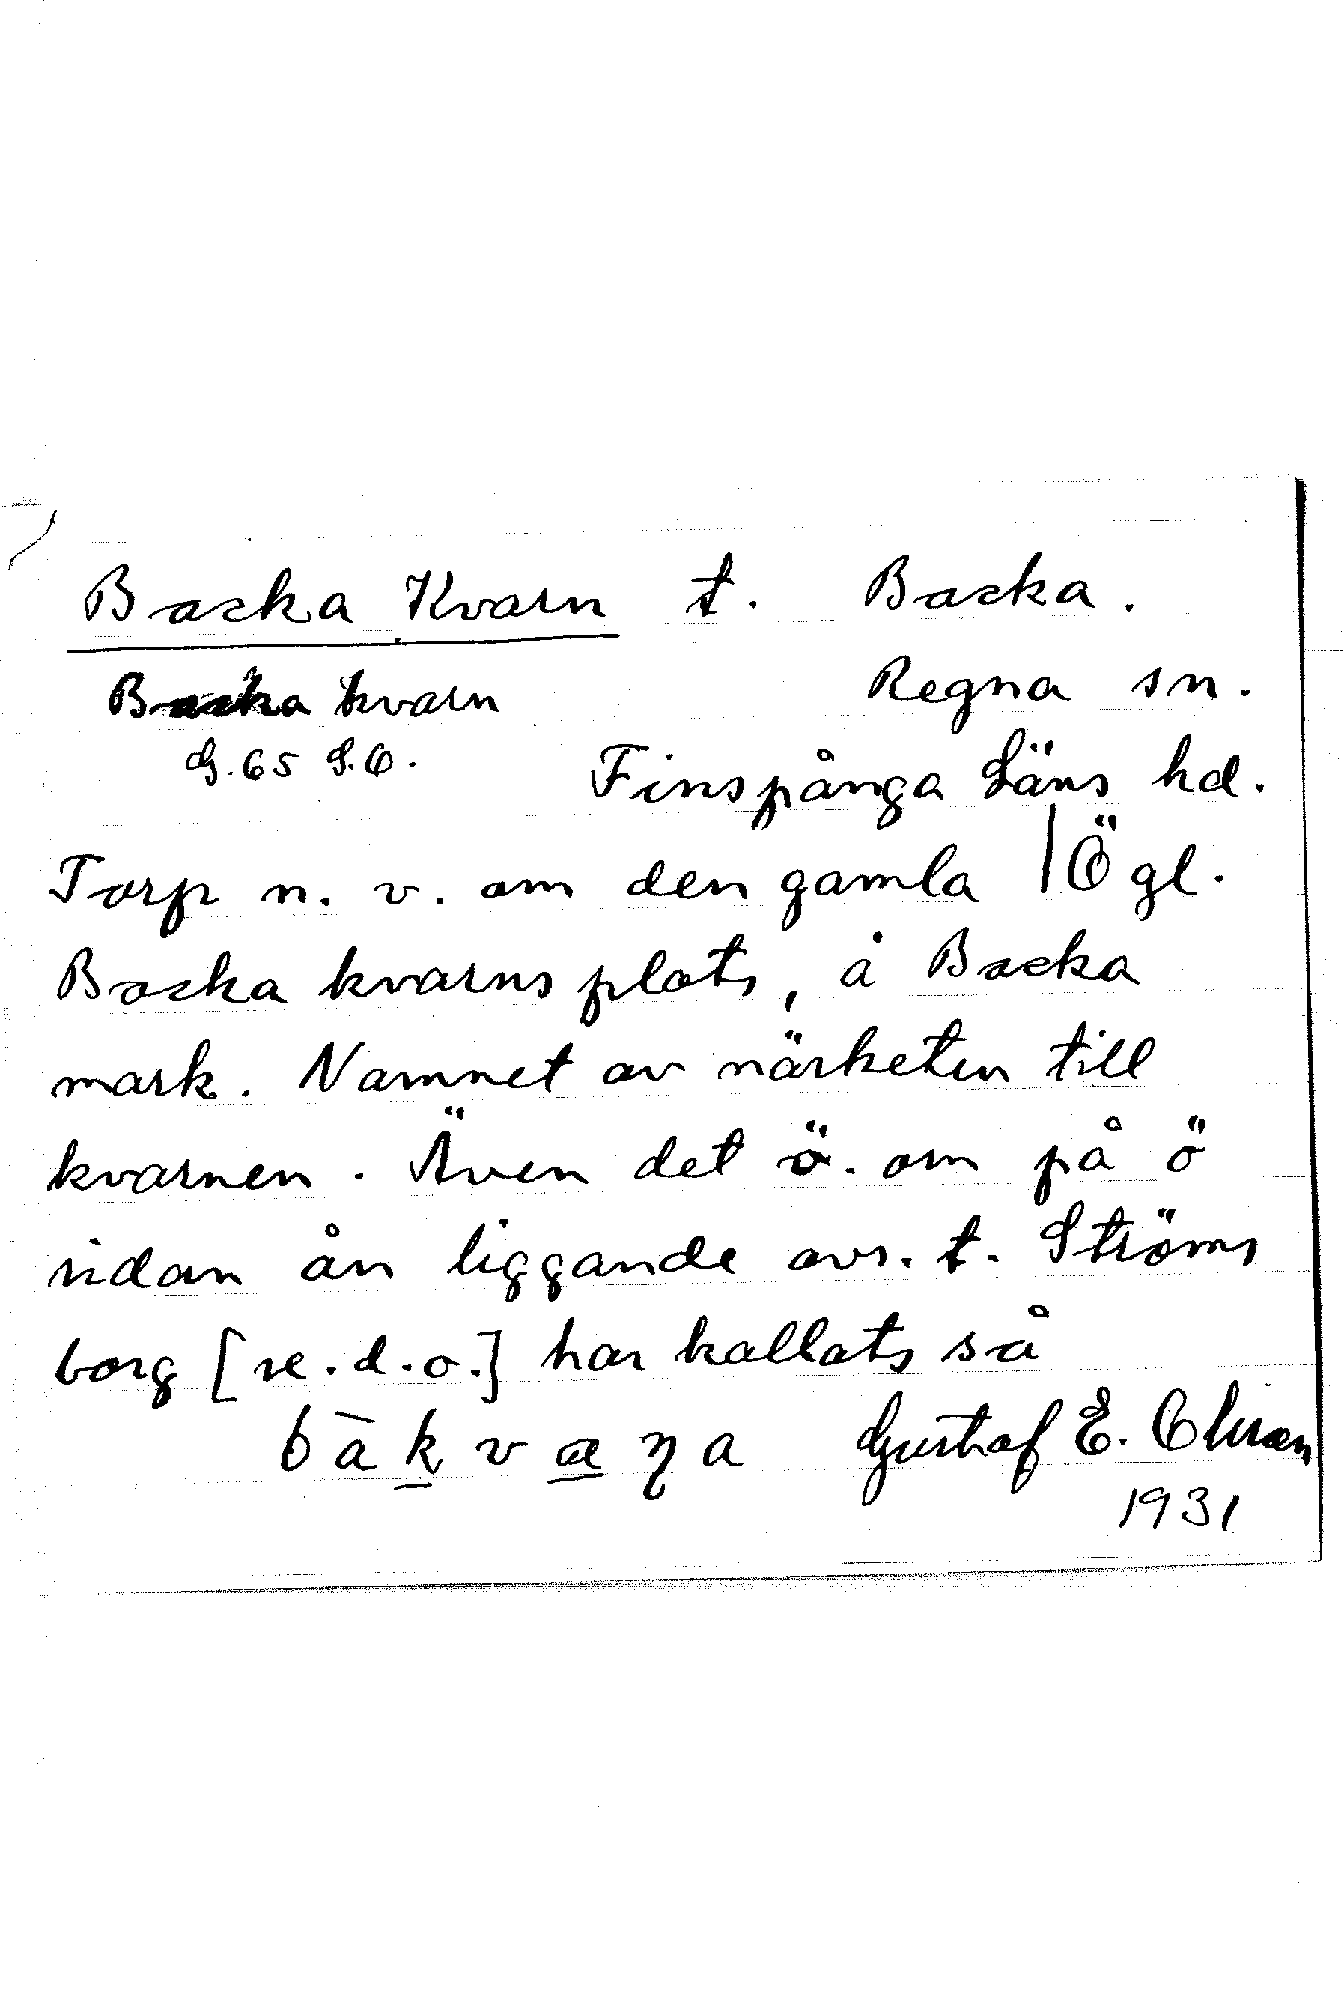 Backa Kvarn t. Backa.
Backa kvarn Regna sn.
G. 65 S.Ö.
Finspånga Läns hd.
Torp n. v. om den gamla | Ögl.
Backa kvarns plats, å Backa
mark. Namnet av närheten till
kvarnen. Även det ö. om på ö
sidan ån liggande avs. t. Ströms
borg [se. d. o.] har kallats så
Gustaf E.
1931